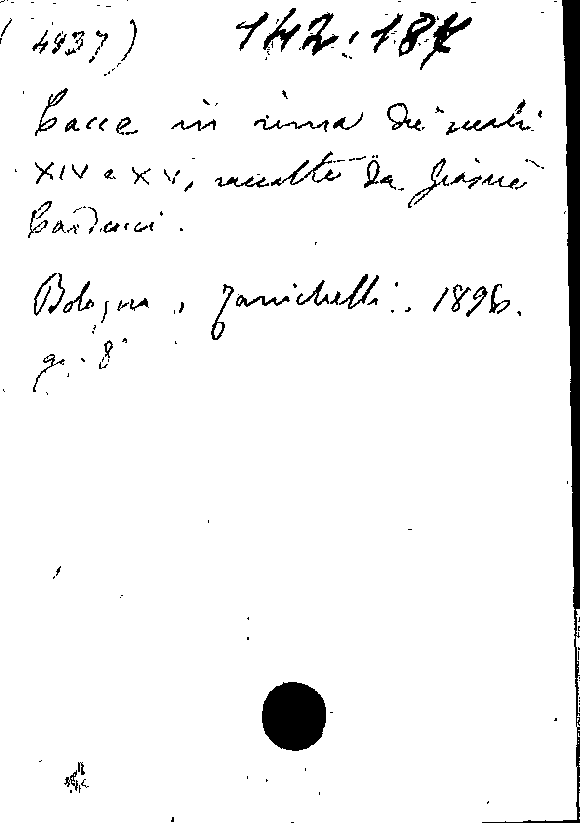 (4937) 142.187
Cacce in rima dei secoli
XIV e XV, raccolte da Giosuè
Carducci.
Bologna, Zanichelli. 1896.
gr. 8°